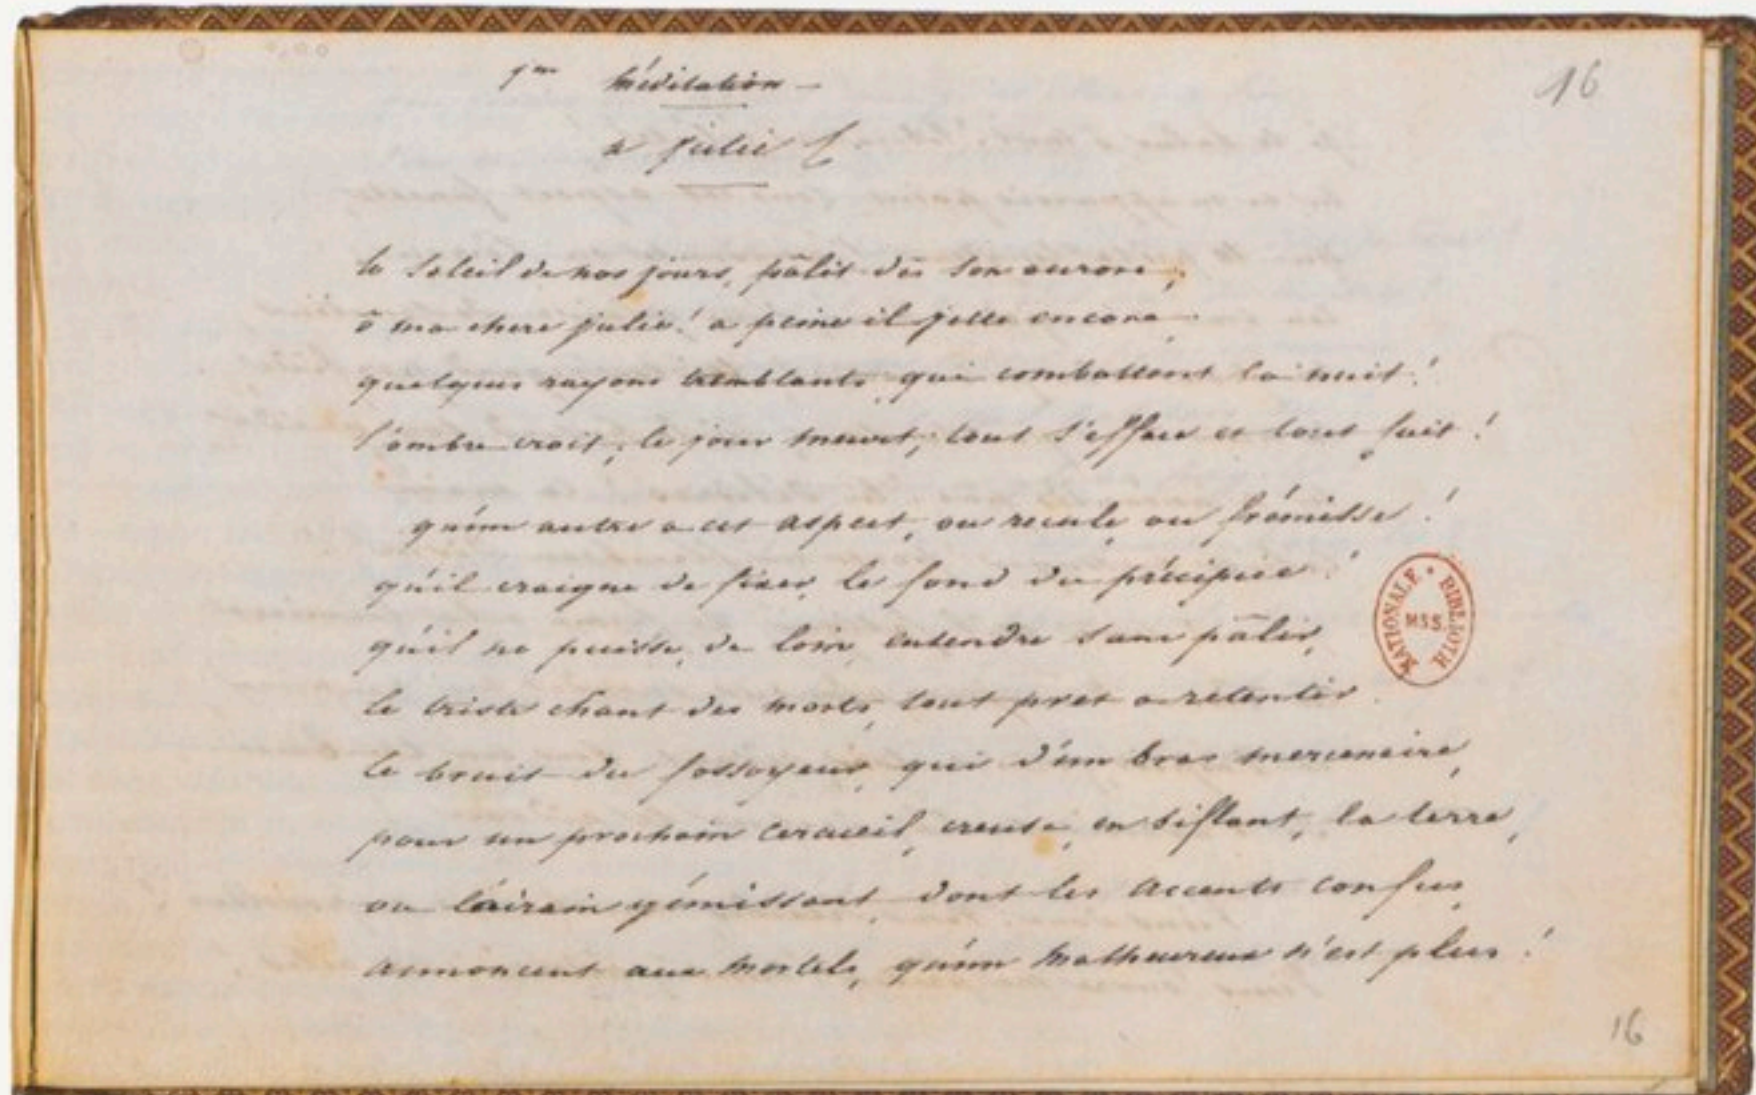 1ere Méditation —
16
a Julie C
le Soleil de nos jours, pâlit dès son aurore,
ô ma chere Julie! a peine il jette encore
quelques rayons tremblants, qui combattent la nuit!
l'ombre croit, le jour meurt, tout s'efface et tout fuit!
qu'un autre a cet aspect, ou recule, ou frémisse!
qu'il craigne de fixer, le fond du précipice!
qu'il ne puisse, de loin, entendre sans pâlir,
le triste chant des morts, tout pret a retentir.
le bruit du fossoyeur, qui d'un bras mercenaire,
pour un prochain cerceuil, creuse, en siflant, la terre,
ou l'airain gémissant, dont les accents confus,
annoncent aux mortels, qu'un malheureux n'est plus!
NATIONALE • BIBLIOTH
MSS
16